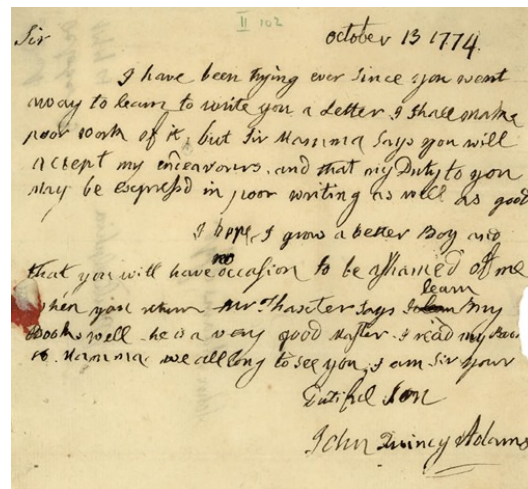 II 102
Sir
october 13 1774.
I have been trying ever since you went
away to learn to write you a Letter I shall make
poor work of it, but Sir Mamma says you will
accept my endeavours, and that my Duty to you
may be expressd in poor writing as well as good
I hope I grow a better Boy and
that you will have no occasion to be ashamed of me
when you return Mr Thaxter says I learn my
Books well he is a very good Master. I read my Books
to Mamma. we all long to see you, I am Sir your
Dutiful Son
John Quincy Adams